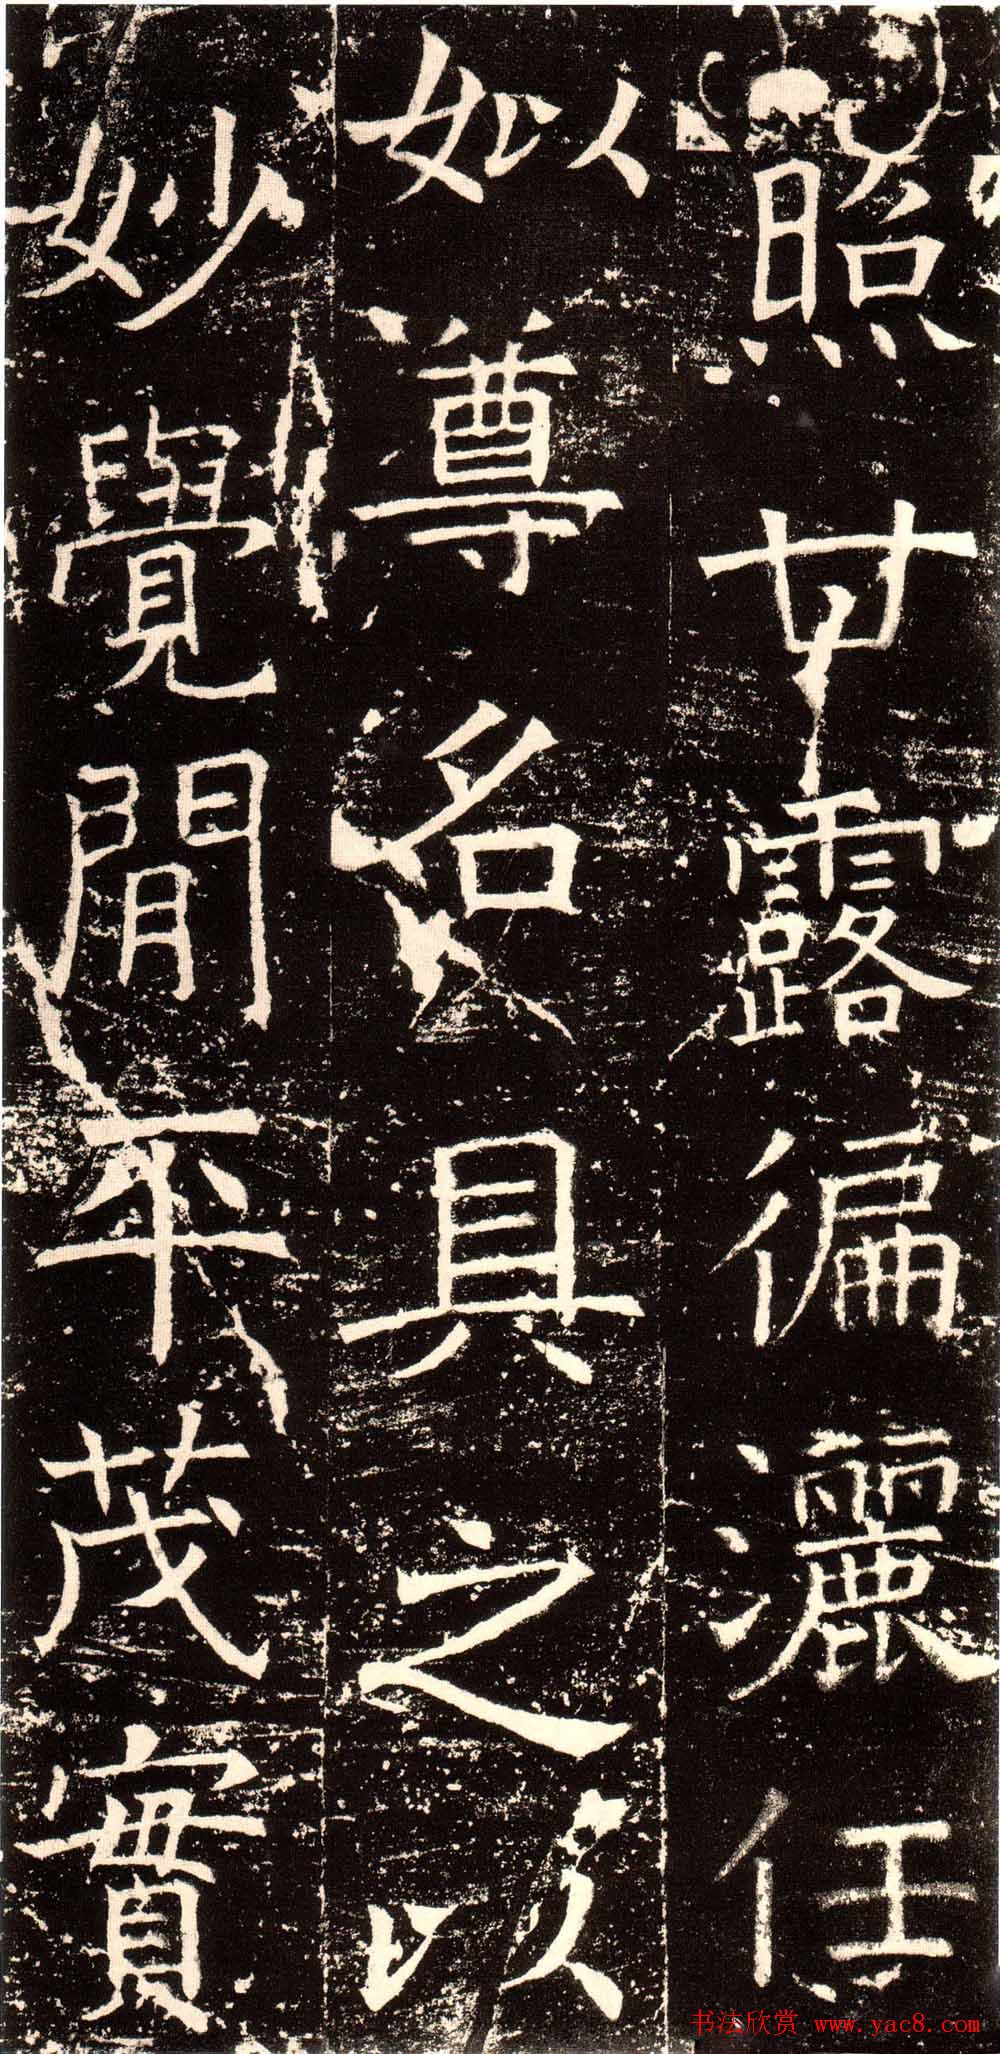 照甘露徧灑任
姒尊名具之以
妙覺閒平茂實
书法欣赏 www.yac8.com